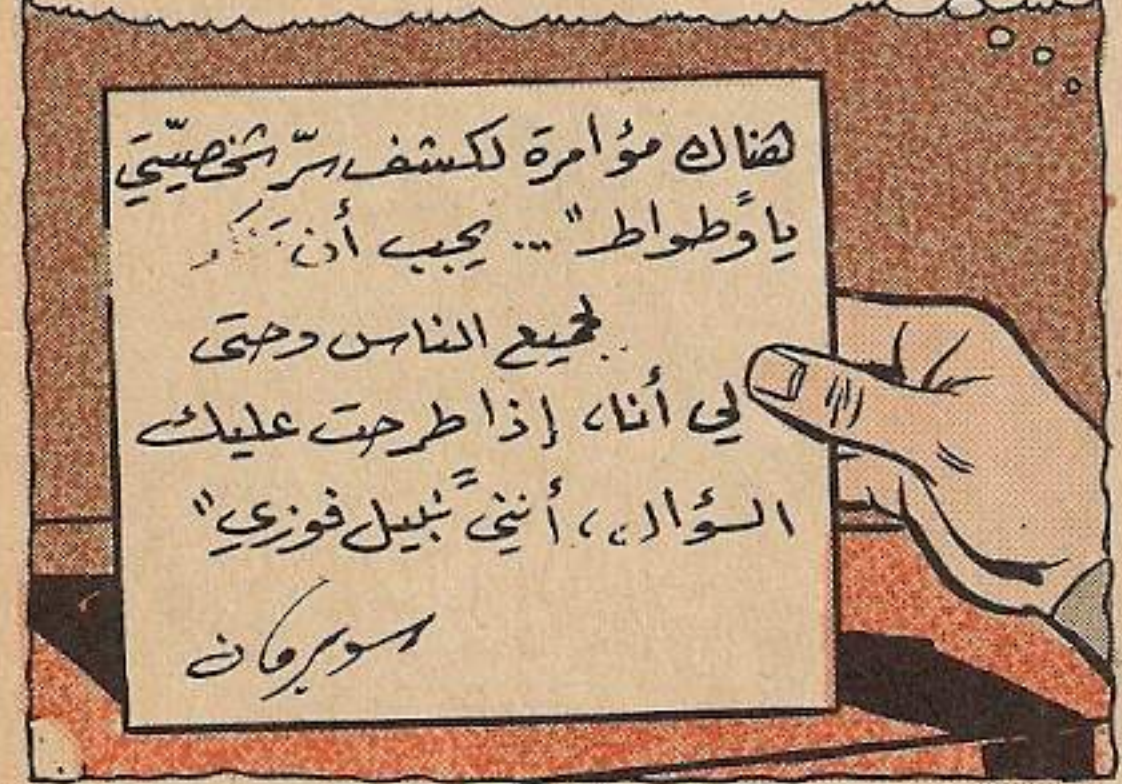 هناك مؤامرة لكشف سرّ شخصيّتي
يا "وطواط" ... يجب أن
لجميع الناس وحتى
لي أنا، إذا طرحت عليك
السؤال، أنني "نبيل فوزي"
سوبرمان